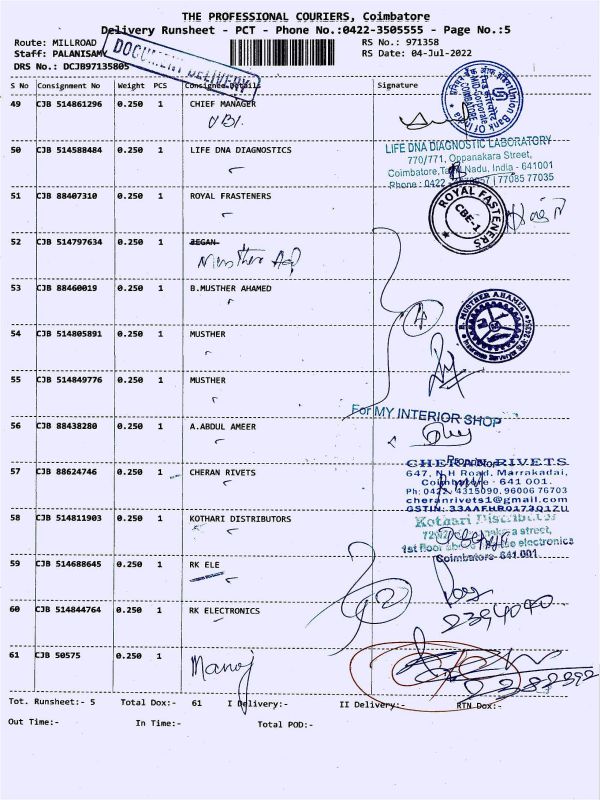 THE PROFESSIONAL COURIERS, Coimbatore
Delivery Runsheet - PCT - Phone No.:0422-3505555 - Page No.:5
Route: MILLROAD
RS No.: 971358
Staff: PALANISAMY
RS Date: 04-Jul-2022
DRS No.: DCJB97135805
DOCUMENT DELIVERY
S No Consignment No Weight PCS Consignee Details Signature
49 CJB 514861296 0.250 1 CHIEF MANAGER
UBI
Union Bank Of India
COIMBATORE
50 CJB 514588484 0.250 1 LIFE DNA DIAGNOSTICS
LIFE DNA DIAGNOSTIC LABORATORY
770/771, Oppanakara Street,
Coimbatore, Tamil Nadu, India - 641001
Phone : 0422 | 77085 77035
51 CJB 88407310 0.250 1 ROYAL FRASTENERS
ROYAL FASTENERS
CBE-1
52 CJB 514797634 0.250 1 BEGAN
Musther
53 CJB 88460019 0.250 1 B.MUSTHER AHAMED
4
B. MUSTHER AHAMED
54 CJB 514805891 0.250 1 MUSTHER
55 CJB 514849776 0.250 1 MUSTHER
For MY INTERIOR SHOP
56 CJB 88438280 0.250 1 A.ABDUL AMEER
Proprietor
57 CJB 88624746 0.250 1 CHERAN RIVETS
CHERAN RIVETS
647, N.H Road, Marrakadai,
Coimbatore - 641 001.
Ph: 0422 4315090, 96006 76703
cheranrivets1@gmail.com
GSTIN: 33AAFHR0173Q1ZU
58 CJB 514811903 0.250 1 KOTHARI DISTRIBUTORS
Kothari Distributor
street,
1st floor electronics
Coimbatore- 641 001
59 CJB 514688645 0.250 1 RK ELE
2
60 CJB 514844764 0.250 1 RK ELECTRONICS
61 CJB 50575 0.250 1
Manoj
Tot. Runsheet:- 5 Total Dox:- 61 I Delivery:- II Delivery:- RTN Dox:-
Out Time:- In Time:- Total POD:-